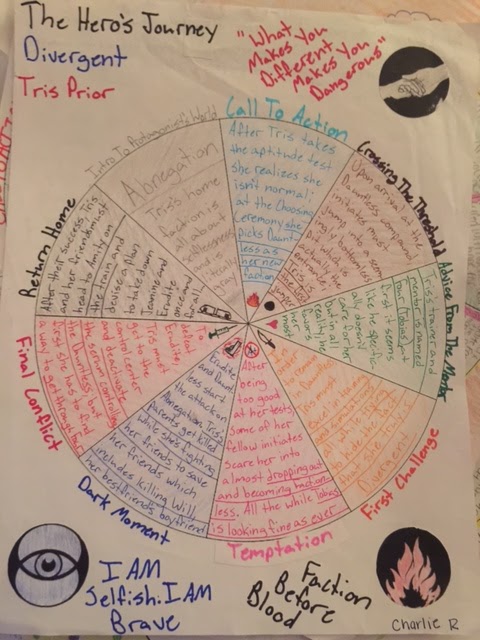 The Hero's Journey
Divergent
Tris Prior
"What
Makes You
Different
Makes You
Dangerous"
Intro To Protagonist's World
Abnegation
Tris's home
faction is
all about
selflessness
and is
literally
gray
Call To Action
After Tris takes
the aptitude test
she realizes she
isn't normal;
at the Choosing
Ceremony she
picks Dauntless
less as
her new
faction
Crossing The Threshold
Upon arrival at the
Dauntless compound
initiates must
jump into a seemingly
bottomless
pit
which is the
entrance
Tris
jumper
Advice From The Mentor
Tris's trainer and
mentor is named
Four (Tobias), but
first it seems
like he specific
ally doesn't
care for her
but in all
reality, he
favors
her
most
First Challenge
to hide the
Divergent
Temptation
After
being
too good
at her tests
some of her
fellow initiates
scare her into
almost dropping out
and becoming faction
less. All the while
is looking fine as ever
Dark Moment
Erudite
and Daunt
less start
the attack on
Abnegation. Tris's
parents get killed
while she's fighting
her friends to save
her friends which
includes killing Will
her bestfriend's boyfriend
Final Conflict
To
defeat
Erudite
Tris must
get to the
control center
and deactivate
the serum controlling
the Dauntless but
first she has to find
a way to get through her
Return Home
After their success, Tris
and her friends must
head to Amity on
the train and
devise a plan
to take down
Jeanine and
Erudite
once and
for all
I AM
Selfish. I AM
Brave
Faction
Before
Blood
Charlie R